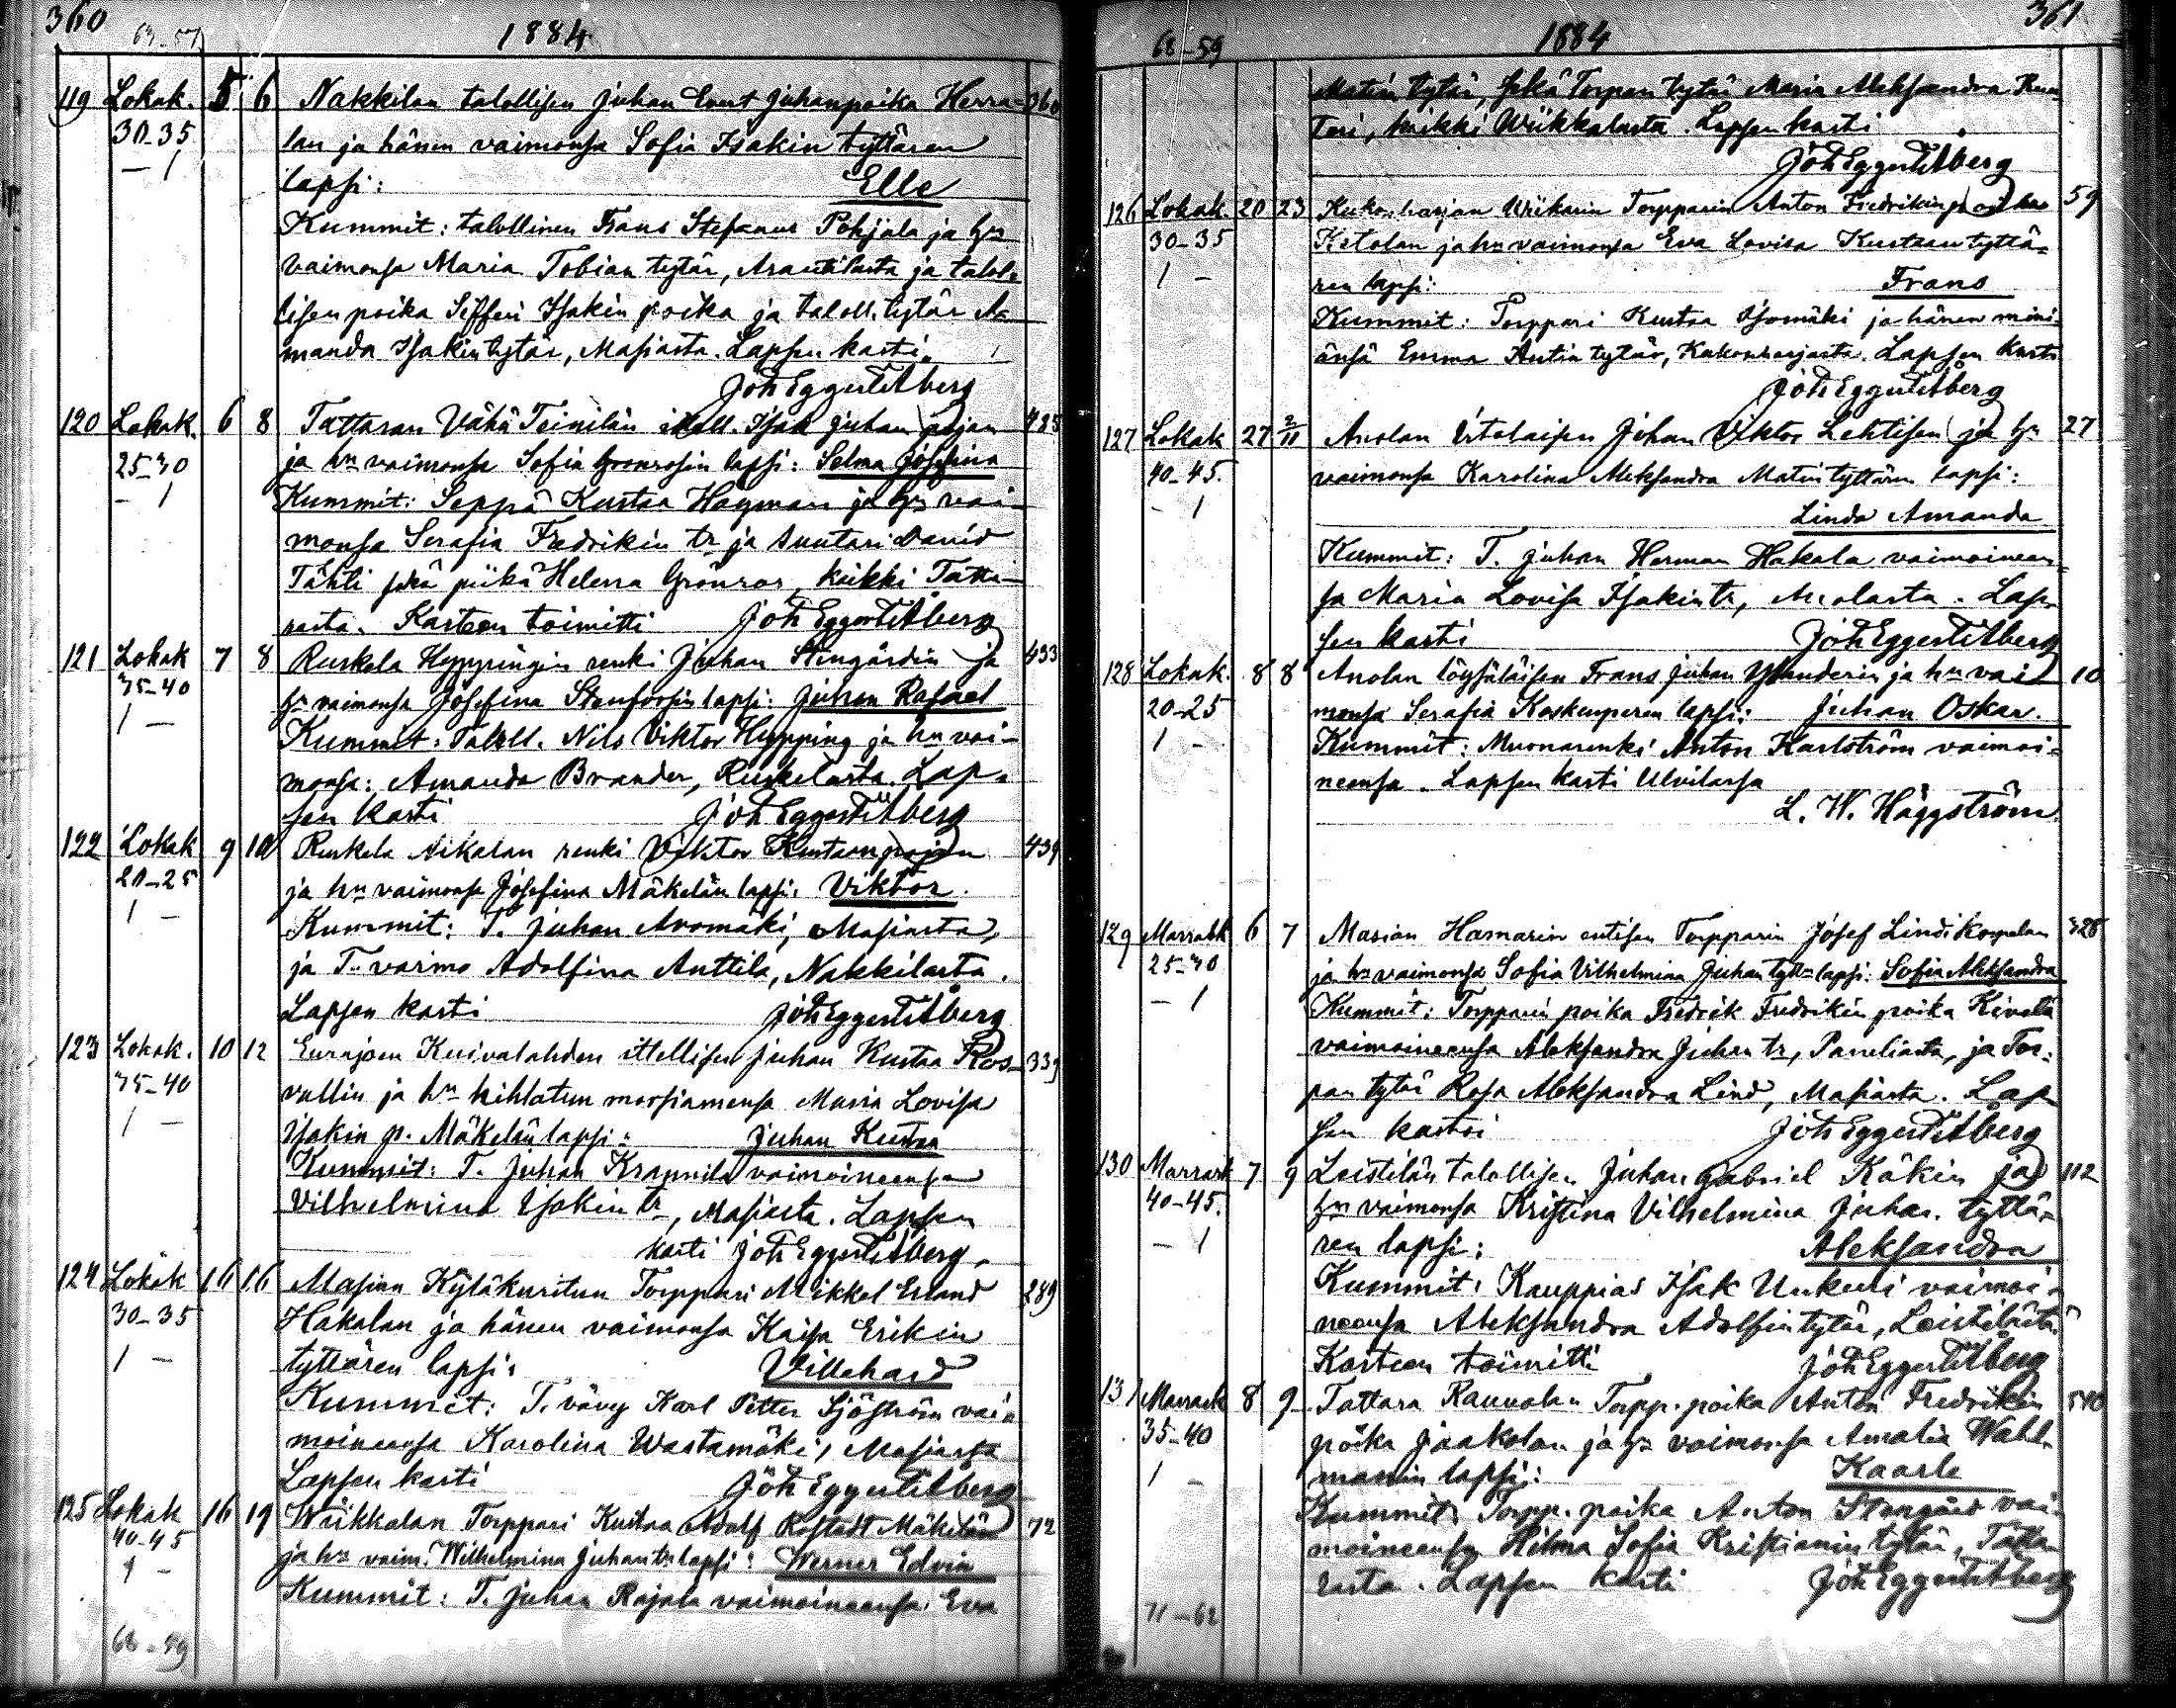 360
63-57
1884
119 Lokak. 5 6 Nakkilan talollisen Juhan Evert Juhanpoika Herra- 360
30-35 lan ja hänen vaimonsa Sofia Isakin tyttären
- 1 lapsi: Elle
Kummit: talollinen Frans Stefanus Pohjala ja hn
vaimonsa Maria Tobian tytär, Arantilasta ja talol-
lisen poika Sefferi Isakin poika ja taloll. tytär A-
manda Isakin tytär, Masiasta. Lapsen kasti
Joh Eggert Åberg
120 Lokak. 6 8 Tattaran Vähä Teinilän itsell. Isak Juhan pojan 485
25-30 ja hn vaimonsa Sofia Grönrosin lapsi: Selma Josefina
- 1 Kummit: Seppä Kustaa Hagman ja hn vai-
monsa Serafia Fredrikin tr ja suutari David
Tähti sekä piika Helena Grönros, kaikki Tatta-
rasta. Kasteen toimitti Joh Eggert Åberg
121 Lokak 7 8 Ruskela Hyppingin renki Juhan Stengårdin ja 433
35-40 hn vaimonsa Josefina Stenforsin lapsi: Juhan Rafael
1 - Kummit: Taloll. Nils Viktor Hypping ja hn vai-
monsa: Amanda Brander, Ruskelasta. Lap-
sen kasti Joh Eggert Åberg
122 Lokak 9 10 Ruskela Nikolan renki Viktor Kustaan pojan 439
20-25 ja hn vaimonsa Josefina Mäkelän lapsi: Viktor.
1 - Kummit: T. Juhan Aromäki, Masiasta,
ja T. vaimo Adolfina Anttila, Nakkilasta.
Lapsen kasti Joh Eggert Åberg
123 Lokak. 10 12 Eurajoen Kuivalahden ittellisen Juhan Kustaa Ros- 339
35-40 vallin ja hn kihlatun morsiamensa Maria Lovisa
1 - Isakin p. Mäkelän lapsi: Juhan Kustaa
Kummit: T. Juhan Krannila vaimoineensa
Vilhelmina Isakin tr, Masiasta. Lapsen
kasti Joh Eggert Åberg.
124 Lokak 16 16 Masian Kyläkuritun Torppari Mikkel Erland 289
30-35 Hakalan ja hänen vaimonsa Kaisa Erikin
1 - tyttären lapsi: Villehard
Kummit: T. vävy Karl Petter Sjöström vai-
moineensa Karolina Wastamäki, Masiasta
Lapsen kasti Joh Eggert Åberg
125 Lokak 16 19 Wiikkalan Torppari Kustaa Adolf Rostedt Mäkelän 72
40-45 ja hn vaim. Wilhelmina Juhan tr lapsi: Werner Edvin
1 - Kummit: T. Juhan Rajala vaimoineensa Eva
68-59
361
68-59
1884
Matin tytär, sekä Torpan tytär Maria Aleksandra Ran-
teri, kaikki Wiikkalasta. Lapsen kasti
Joh Eggert Åberg
126 Lokak. 20 23 Kukonharjan Wiikarin Torpparin Anton Fredrikin pojan 59
30-35 Ketolan ja hn vaimonsa Eva Lovisa Kustaan tyttä-
1 - ren lapsi: Frans
Kummit: Torppari Kustaa Isomäki ja hänen mini-
änsä Emma Antin tytär, Kukonharjasta. Lapsen kasti
Joh Eggert Åberg
127 Lokak 27 2/11 Anolan Itsellisen Johan Viktor Lehtisen ja hn 27
40-45. vaimonsa Karolina Aleksandra Matin tyttären lapsi:
- 1 Linda Amanda
Kummit: T. Juhan Herman Hakala vaimoineen-
sa Maria Lovisa Isakin tr, Anolasta. Lap-
sen kasti Joh Eggert Åberg
128 Lokak. 8 8 Anolan löysäläisen Frans Juhan Ylanderin ja hn vai- 10
20-25 monsa Serafia Koskenperen lapsi: Juhan Oskar.
1 - Kummit: Muonarenki Anton Karlström vaimoi-
neensa. Lapsen kasti Ulvilassa
L. W. Häggström
129 Marrask 6 7 Masian Hamarin entisen Torpparin Josef Lindikorpelan 328
25-30 ja hn vaimonsa Sofia Vilhelmina Juhan tytt. lapsi: Sofia Aleksandra
- 1 Kummit: Torpparin poika Fredrik Fredrikin poika Kivelä
vaimoineensa Aleksandra Juhan tr, Panelista, ja Tor-
pan tytär Rosa Aleksandra Lind, Masiasta. Lap-
sen kastoi Joh Eggert Åberg
130 Marrask 7 9 Leistilän talollisen Juhan Gabriel Käkin ja 112
40-45. hn vaimonsa Kristiina Vilhelmina Juhan tyttä-
- 1 ren lapsi: Aleksandra
Kummit: Kauppias Isak Unkuri vaimoi-
neensa Aleksandra Adolfin tytär, Leistilästä.
Kasteen toimitti Joh Eggert Åberg
131 Marrask 8 9 Tattara Rauvolan Torpp. poika Anton Fredrikin 540
35-40 poika Jaakolan ja hn vaimonsa Amalia Wahl-
1 - manin lapsi: Kaarle
Kummit: Torpp. poika Anton Stengård vai-
moineensa Hilma Sofia Kristianin tytär, Tatta-
rasta. Lapsen kasti Joh Eggert Åberg
71-62